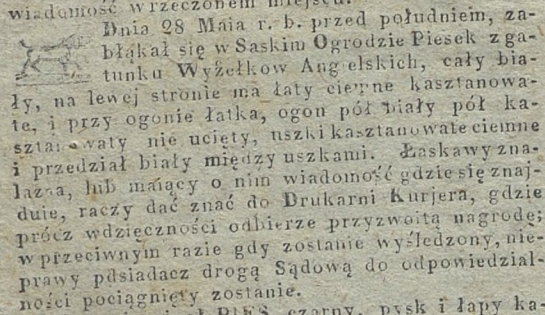 wiadomość w rzeczonem miejscu.
Dnia 28 Maia r. b. przed południem, za-
błąkał się w Saskim Ogrodzie Piesek z ga-
tunku Wyżełkow Angielskich, cały bia-
ły, na lewej stronie ma łaty ciemne kasztanowa-
te, i przy ogonie łatka, ogon pół biały pół ka-
sztanowaty nie ucięty, uszki kasztanowate ciemne
i przedział biały między uszkami. Łaskawy zna-
lazca, lub maiący o nim wiadomość gdzie się znaj-
duie, raczy dać znać do Drukarni Kurjera, gdzie
prócz wdzięczności odbierze przyzwoitą nagrodę;
w przeciwnym razie gdy zostanie wyśledzony, nie-
prawy pdsiadacz drogą Sądową do odpowiedzial-
ności pociągnięty zostanie.
PIES czarny, pysk i łapy ka-